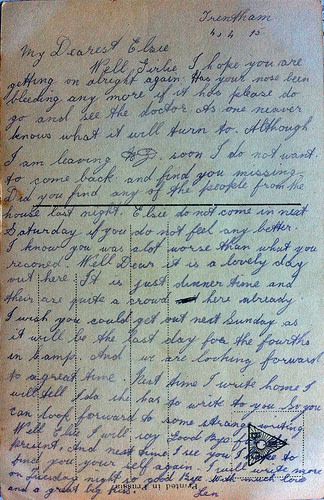 Trentham
4. 4. 15
My Dearest Elsie
Well, Girlie I hope you are
getting on alright again. Has your nose been
bleeding any more if it has please do
go and see the doctor. As one neaver
knows what it will turn to. Although
I am leaving soon I do not want
to come back and find you missing.
did you find any of the peeople from the
house last night. Elsie do not come in next
Saturday if you do not feel any better.
I know you was alot worse than what you
reconed. Well Dear it is a lovely day
out here. It is just dinner time and
their are quite a crowd here already.
I wish you could get out next Sunday as
it will be the last day for the fourths
in camp. And we are looking forward
to a great time. Next time I write home I
will tell Ida she has to write to you So you
can look forward to some strange writing.
Well Elsie I will say Good Bye for
present, And next time I see you I hope to
find you your self again. I will write more
on Tuesday night so good Bye With much Love
and a great big kiss
Len
Printed in